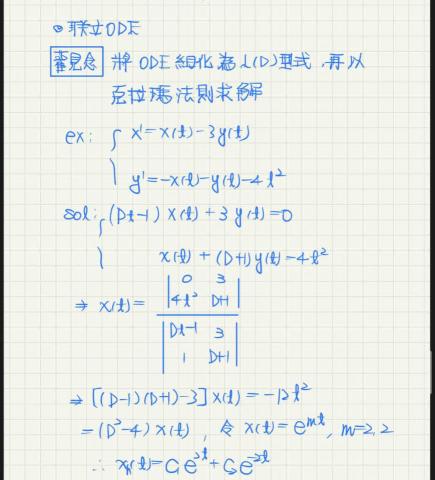 ◎聯立ODE
觀念 將ODE細化為L(D)型式,再以
克拉瑪法則求解
ex: { x'=x(t)-3y(t)
y'=-x(t)-y(t)-4t²
sol: { (Dt-1)x(t)+3y(t)=0
x(t)+(D+1)y(t)=-4t²
⇒ x(t)= | 0 3 |
| 4t² D+1 |
| Dt-1 3 |
| 1 D+1 |
⇒ [(D-1)(D+1)-3]x(t)=-12t²
=(D²-4)x(t), 令 x(t)=e^{mt}, m=2,2
∴ x_h(t)=C₁e^{2t}+C₂e^{-2t}